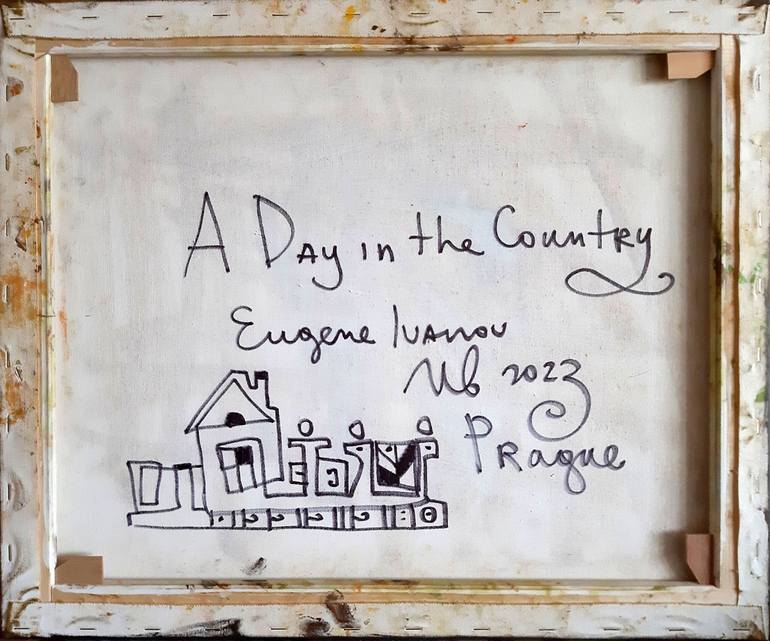 A Day in the Country
Eugene Ivanov
2023
Prague